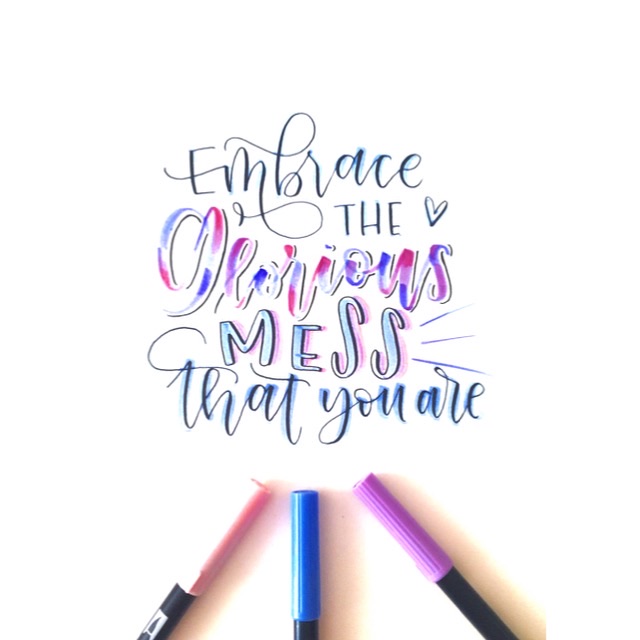 Embrace
THE
Glorious
MESS
that you are